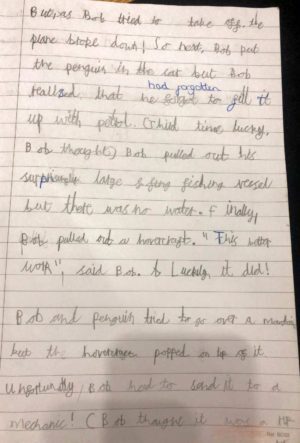 But, as Bob tried to take off the
plane broke down! So next, Bob put
the penguin in the car but Bob
had forgotten
realised that he forgot to fill it
up with petrol. (Third time lucky,
Bob thought) Bob pulled out his
large fishing vessel
but there was no water. Finally,
Bob pulled out a hovercraft. "This better
work", said Bob. Luckily, it did!
Bob and penguin tried to go over a
but the popped on top of it.
Bob had to send it to a
mechanic! (Bob thought it was a